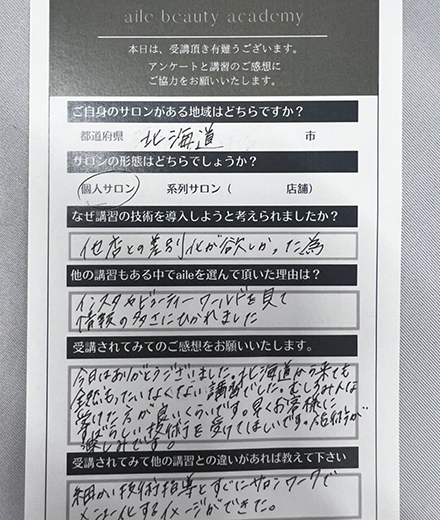 aile beauty academy
本日は、受講頂き有難うございます。
アンケートと講習のご感想に
ご協力をお願いいたします。
ご自身のサロンがある地域はどちらですか？
都道府県 北海道 市
サロンの形態はどちらでしょうか？
個人サロン 系列サロン（ 店舗）
なぜ講習の技術を導入しようと考えられましたか？
他店との差別化が欲しかった為
他の講習もある中でaileを選んで頂いた理由は？
インスタやビューティーワールドを見て
情報の多さにひかれました
受講されてみてのご感想をお願いいたします。
今日はありがとうございました。北海道から来ても
全然もったいなくない講習でした。むしろみんな
受けた方が良いくらいです。早くお客様に
すばらしい技術を受けてほしいです。施術が
楽しみです。
受講されてみて他の講習との違いがあれば教えて下さい
細かい技術指導とすぐにサロンワークで
化するイメージができた。